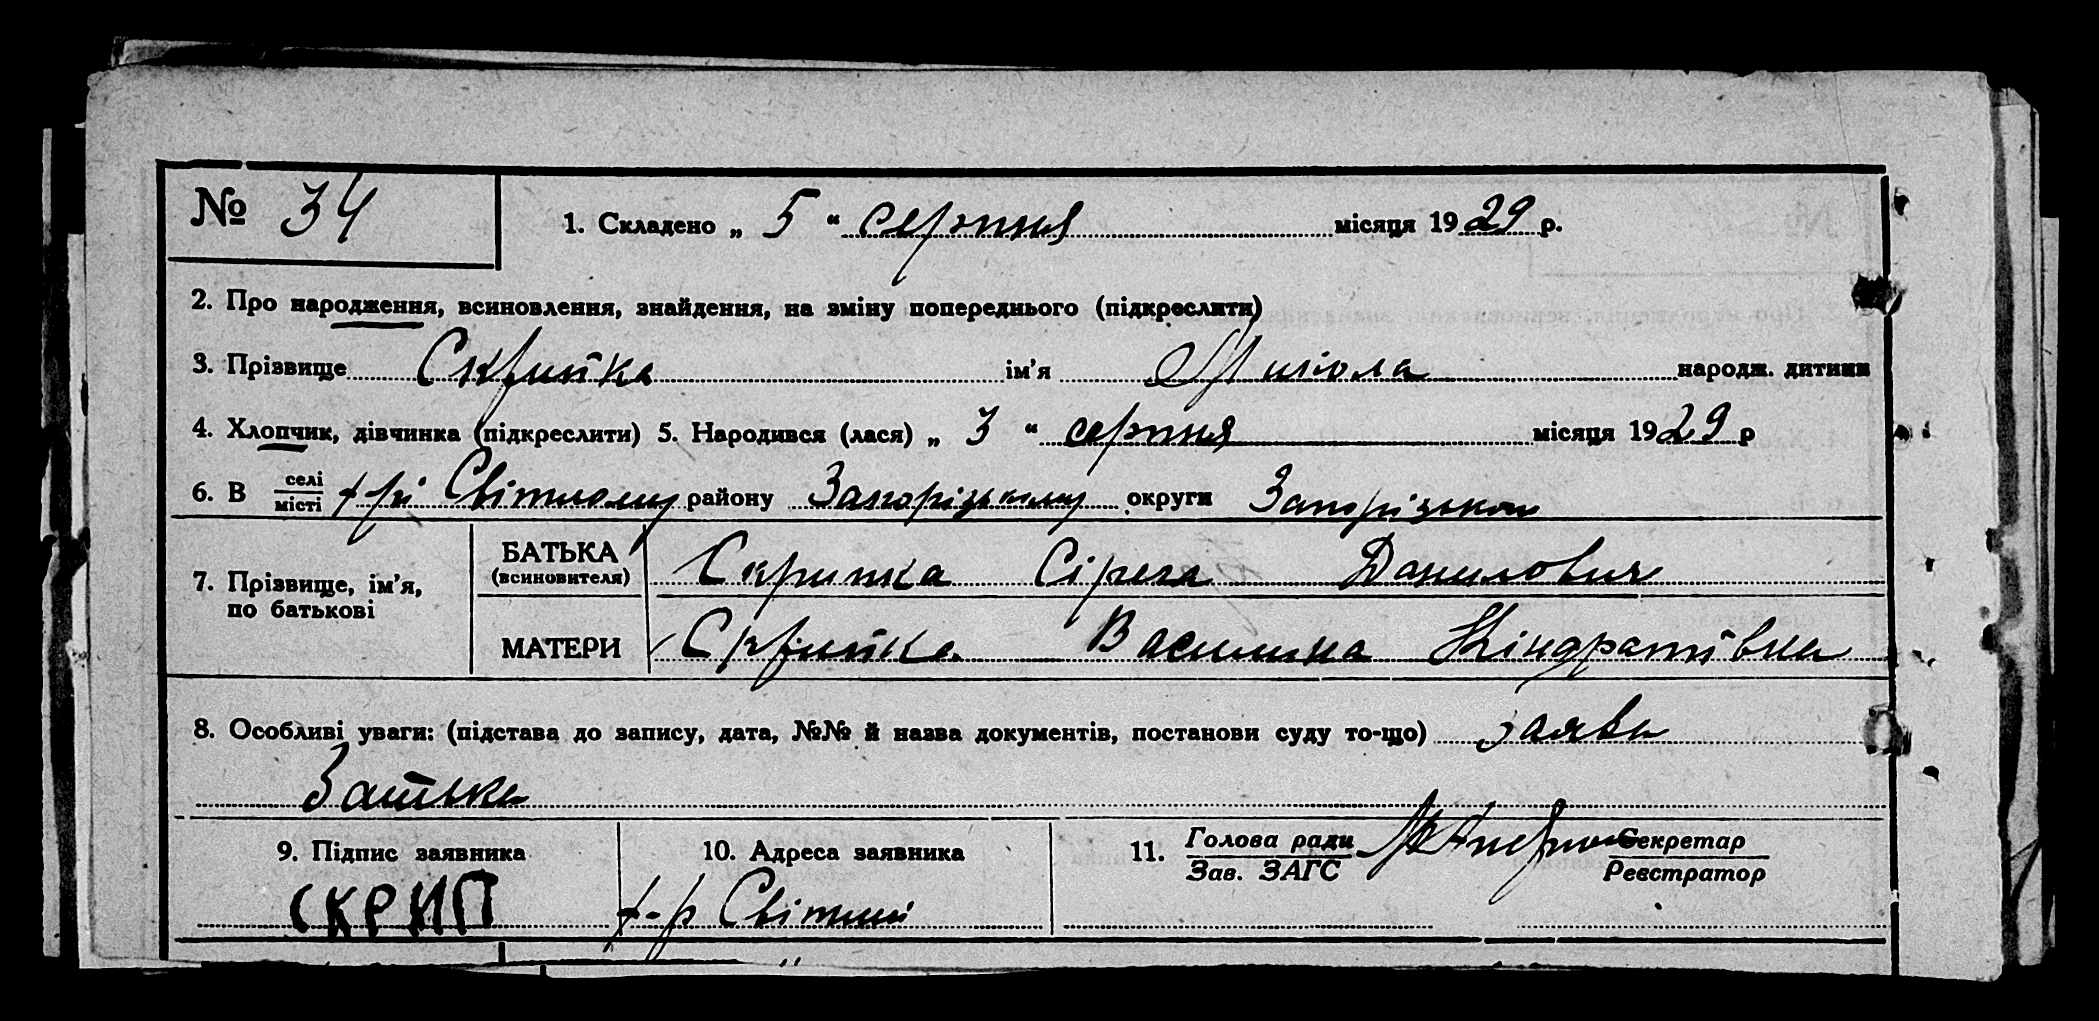 № 34
1. Складено „ 5 “ серпня місяця 1929 р.
2. Про народження, всиновлення, знайдення, на зміну попереднього (підкреслити)
3. Прізвище Скрипка ім’я Микола народж. дитини
4. Хлопчик, дівчинка (підкреслити) 5. Народився (лася) „ 3 “ серпня місяця 1929 р
6. В селі місті х-рі Світлому району Запорізькому округи Запорізькои
7. Прізвище, ім’я, по батькові
БАТЬКА (всиновителя) Скрипка Сірега Данилович
МАТЕРИ Скрипка Василина Кіндратівна
8. Особливі уваги: (підстава до запису, дата, №№ й назва документів, постанови суду то-що) заява
Батька
9. Підпис заявника
10. Адреса заявника
11. Голова ради Зав. ЗАГС
Секретар Реєстратор
СКРИП
х-р Світлий